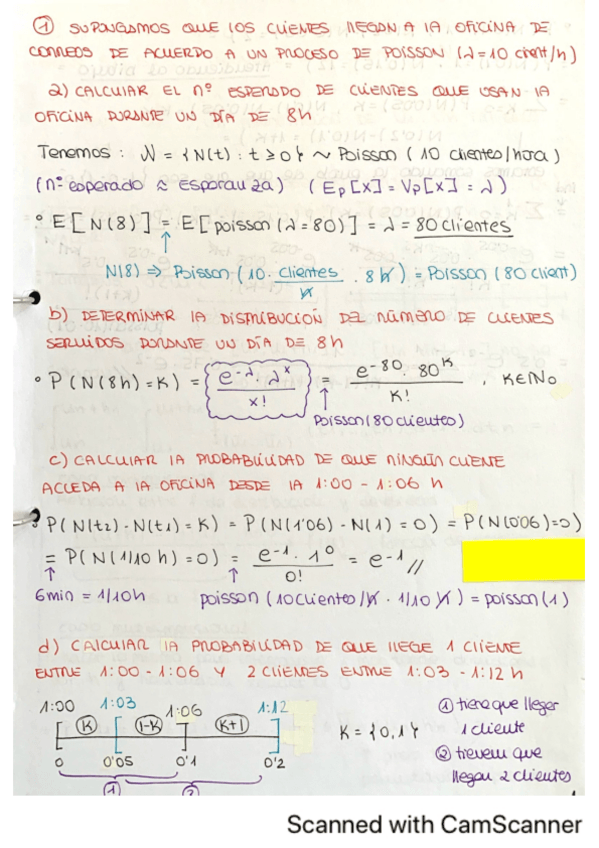 ① SUPONGAMOS QUE LOS CLIENTES LLEGAN A LA OFICINA DE
CORREOS DE ACUERDO A UN PROCESO DE POISSON (λ=10 client/h)
a) CALCULAR EL nº ESPERADO DE CLIENTES QUE USAN LA
OFICINA DURANTE UN DÍA DE 8h
Tenemos : N = {N(t) : t ≥ 0} ~ Poisson ( 10 clientes/hora )
(nº esperado ≈ esperanza) ( Ep[x] = Vp[x] = λ )
° E[N(8)] = E[poisson(λ=80)] = λ = 80 clientes
↑
N(8) ⇒ Poisson (10 · clientes/h · 8h) = Poisson (80 client)
b) DETERMINAR LA DISTRIBUCIÓN DEL NÚMERO DE CLIENTES
SERVIDOS DURANTE UN DÍA DE 8h
° P(N(8h)=K) = (e^-λ · λ^x / x!) = e^-80 · 80^K / K! , K∈N₀
↑
Poisson(80 clientes)
c) CALCULAR LA PROBABILIDAD DE QUE NINGÚN CLIENTE
ACUDA A LA OFICINA DESDE LA 1:00 - 1:06 h
° P(N(t2)-N(t1)=K) = P(N(1'06) - N(1) = 0) = P(N(0'06)=0)
= P(N(1/10 h) = 0) = e^-1 · 1^0 / 0! = e^-1 //
↑ ↑
6min = 1/10h poisson (10 clientes/h · 1/10 h) = poisson(1)
d) CALCULAR LA PROBABILIDAD DE QUE LLEGE 1 CLIENTE
ENTRE 1:00 - 1:06 Y 2 CLIENTES ENTRE 1:03 - 1:12 h
1:00 1:03 1:06 1:12
K 1-K K+1
0 0'05 0'1 0'2
① ②
K = {0,1}
① tiene que lleger
1 cliente
② que
llegan 2 clientes
Scanned with CamScanner